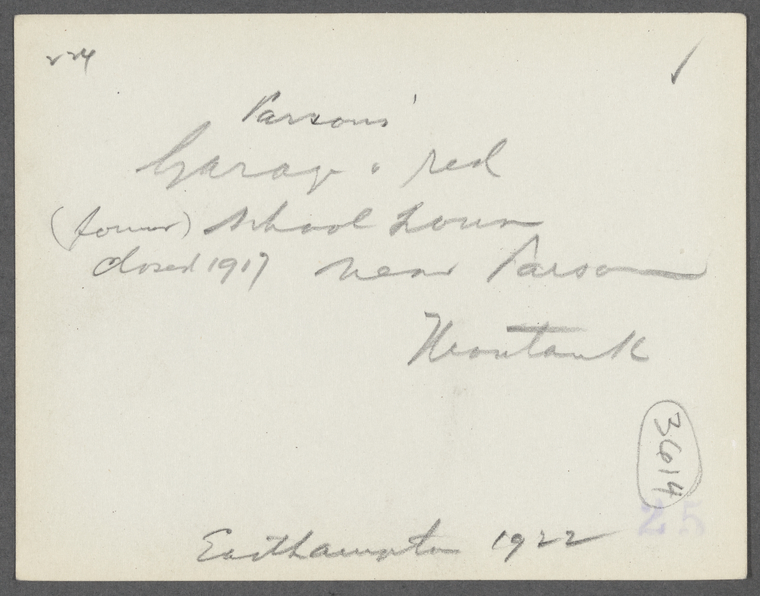 224
Parsons'
Garage & red
(former) School house
closed 1917 near Parsons
Montauk
3614
25
Easthampton 1922